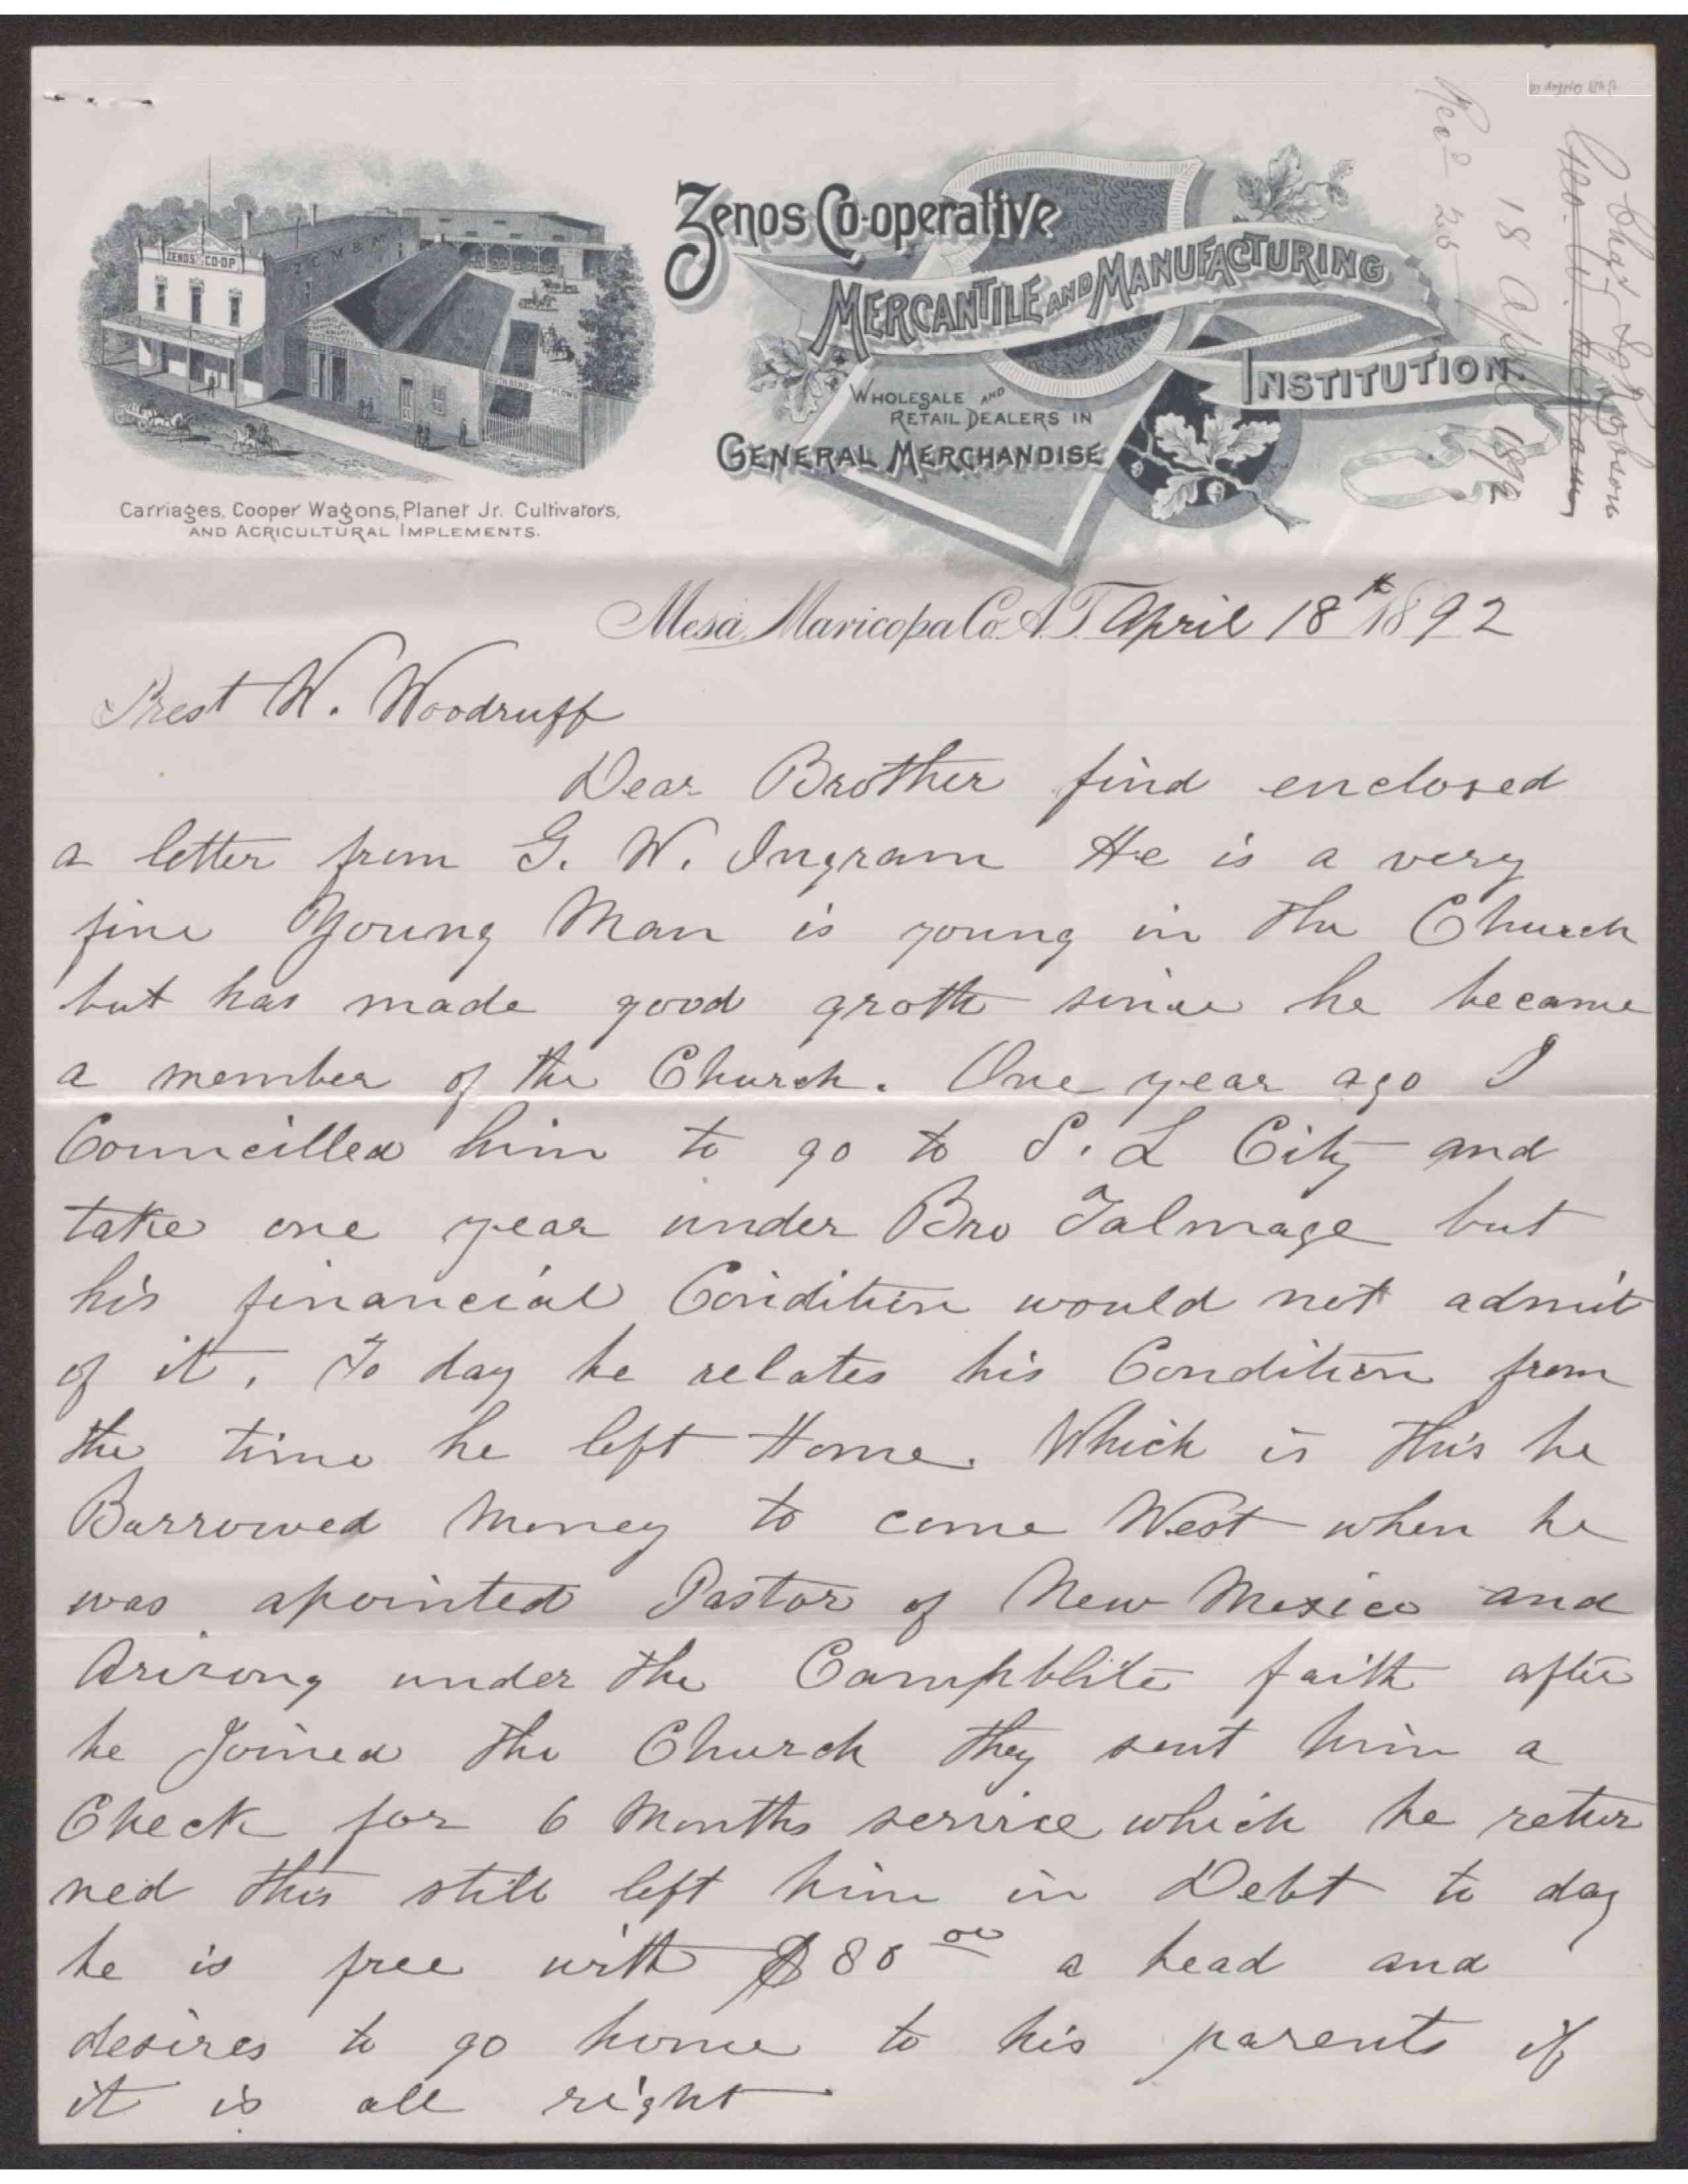 ZENOS CO-OP
Z.C.M.&M.I.
Carriages, Cooper Wagons, Planet Jr. Cultivators,
AND AGRICULTURAL IMPLEMENTS.
Zenos Co-operative
MERCANTILE AND MANUFACTURING
INSTITUTION.
WHOLESALE AND
RETAIL DEALERS IN
GENERAL MERCHANDISE
Chas Igr Robson
Geo. W. Ingram
18 April 1892
Recd 25
Mesa, Maricopa Co. A.T. April 18th 1892
Prest W. Woodruff
Dear Brother find enclosed
a letter from G. W. Ingram He is a very
fine Young Man is young in the Church
but has made good groth since he became
a member of the Church. One year ago I
Councilled him to go to S. L City and
take one year under Bro Talmage but
his financial Condition would not admit
of it, To day he relates his Condition from
the time he left Home. Which is this he
Barrowed Money to come West when he
was apointed Pastor of New Mexico and
Arizona under the Campblite faith after
he Joined the Church they sent him a
Check for 6 Months service which he retur
ned this still left him in Debt to day
he is free with $80 00 a head and
desires to go home to his parents if
it is all right